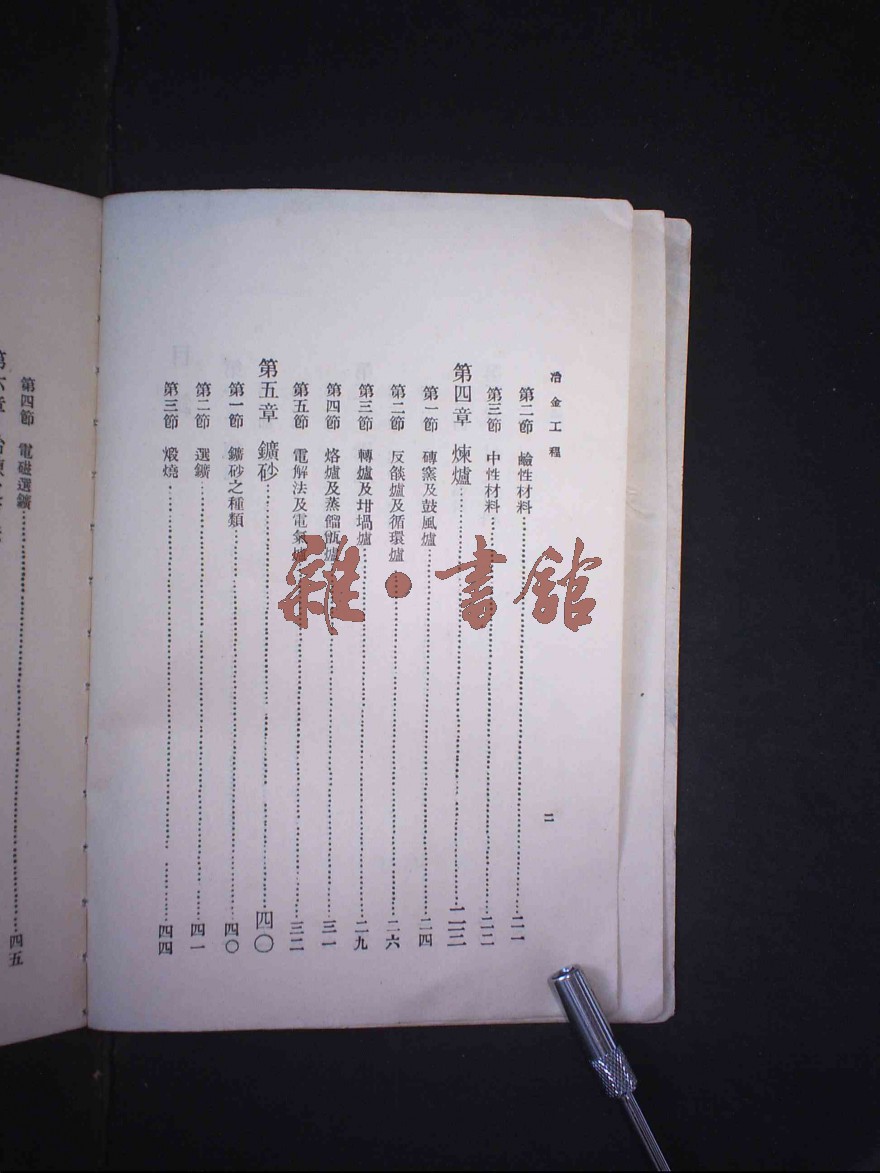 冶金工程
二
第二節 鹼性材料…………二一
第三節 中性材料…………二二
第四章 煉爐…………二三
第一節 磚窰及鼓風爐…………二四
第二節 反燄爐及循環爐…………二六
第三節 轉爐及坩堝爐…………二九
第四節 烙爐及蒸餾甑爐…………三一
第五節 電解法及電氣爐…………三二
第五章 鑛砂…………四〇
第一節 鑛砂之種類…………四〇
第二節 選鑛…………四一
第三節 煅燒…………四四
第四節 電磁選鑛…………四五
雜·書館